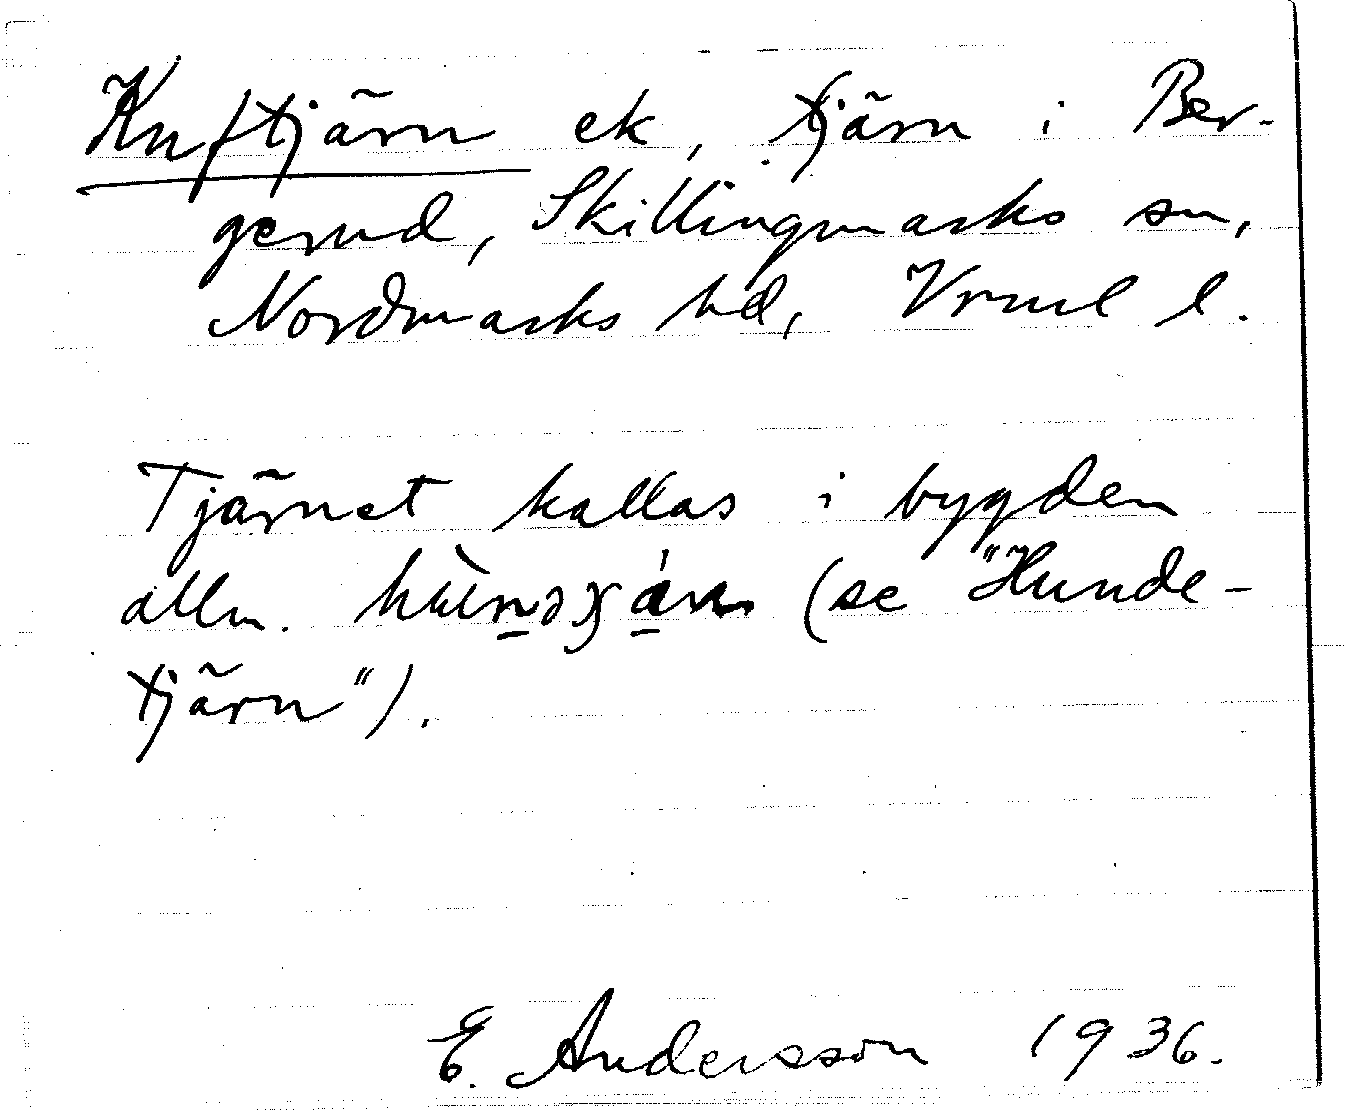 Knftjärn ek, tjärn i Ber-
gerud, Skillingmarks sn,
Nordmarks hd, Vrml l.
Tjärnet kallas i bygden
allm. (se "Hunde-
tjärn").
E. Andersson 1936.